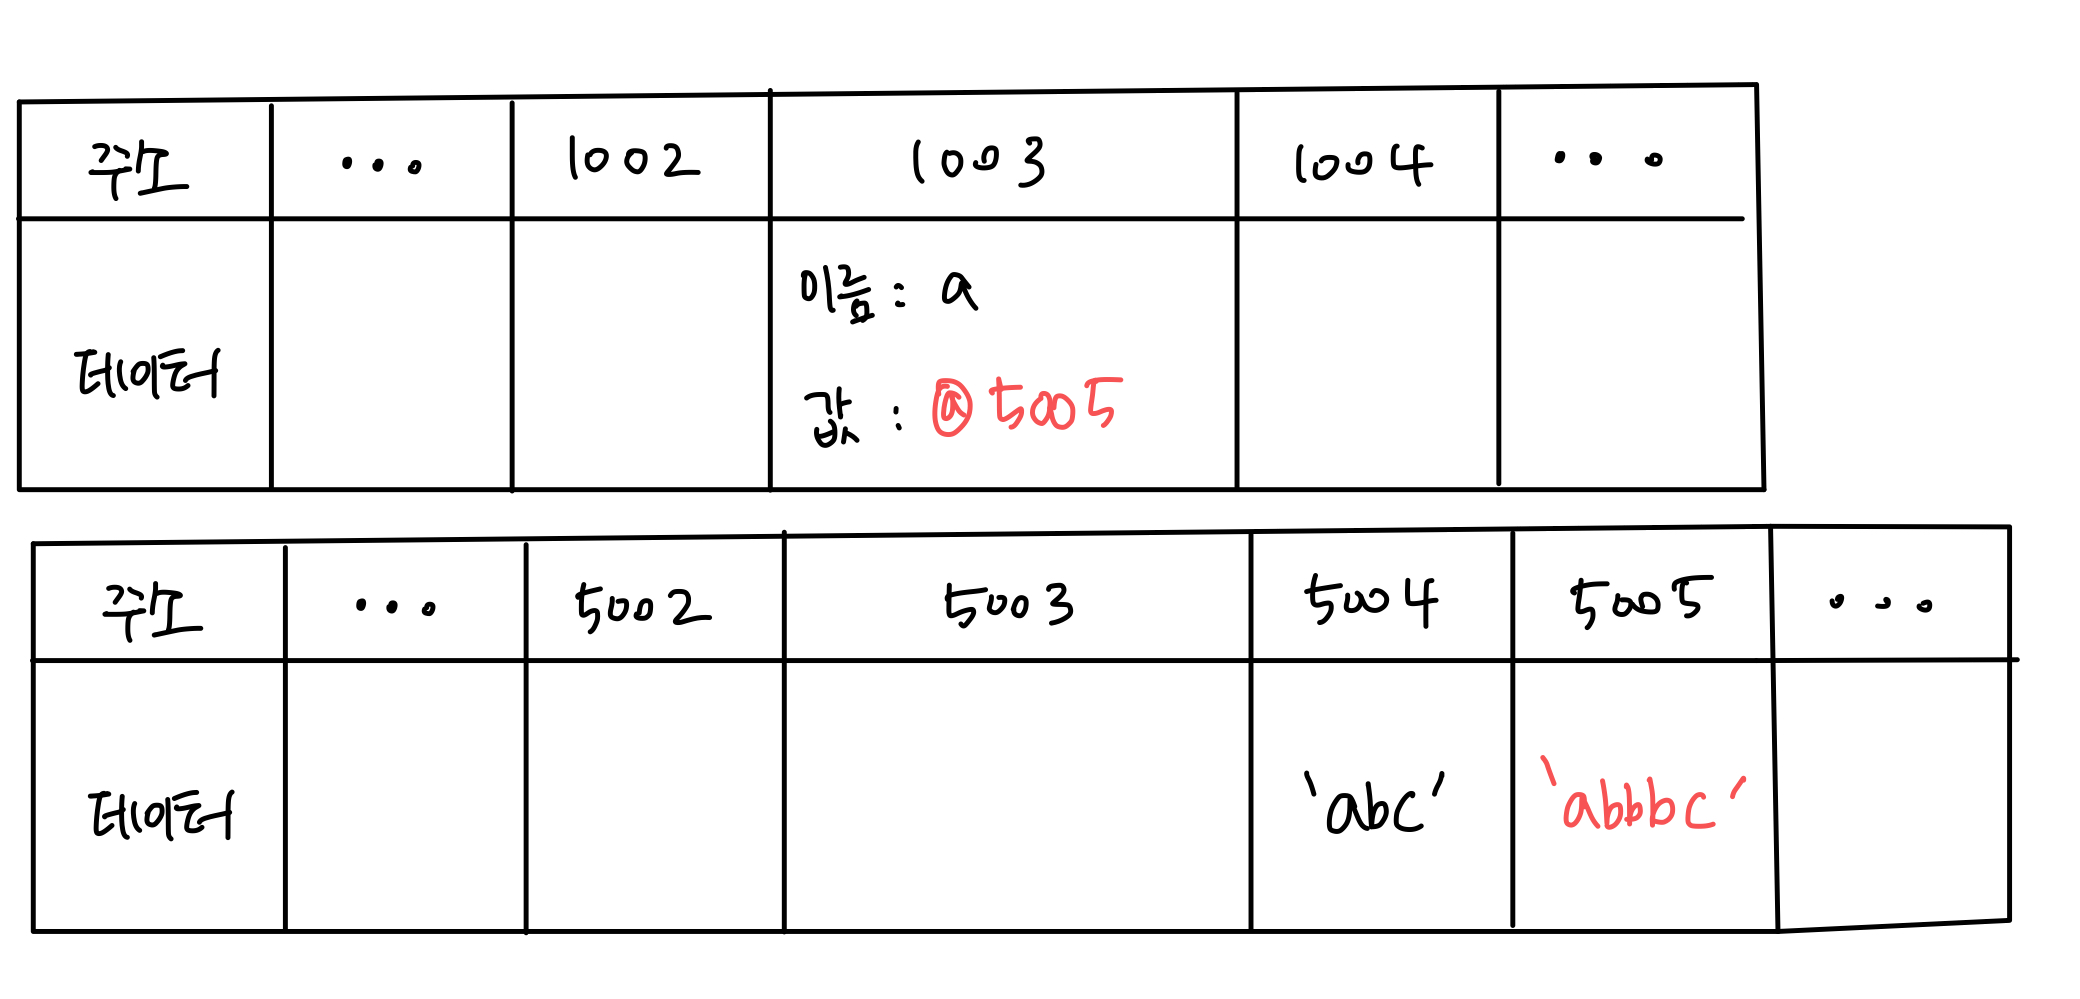 주소 ... 1002 1003 1004 ...
데이터
이름 : a
값 : @5005
주소 ... 5002 5003 5004 5005 ...
데이터 'abc' 'abbbc'